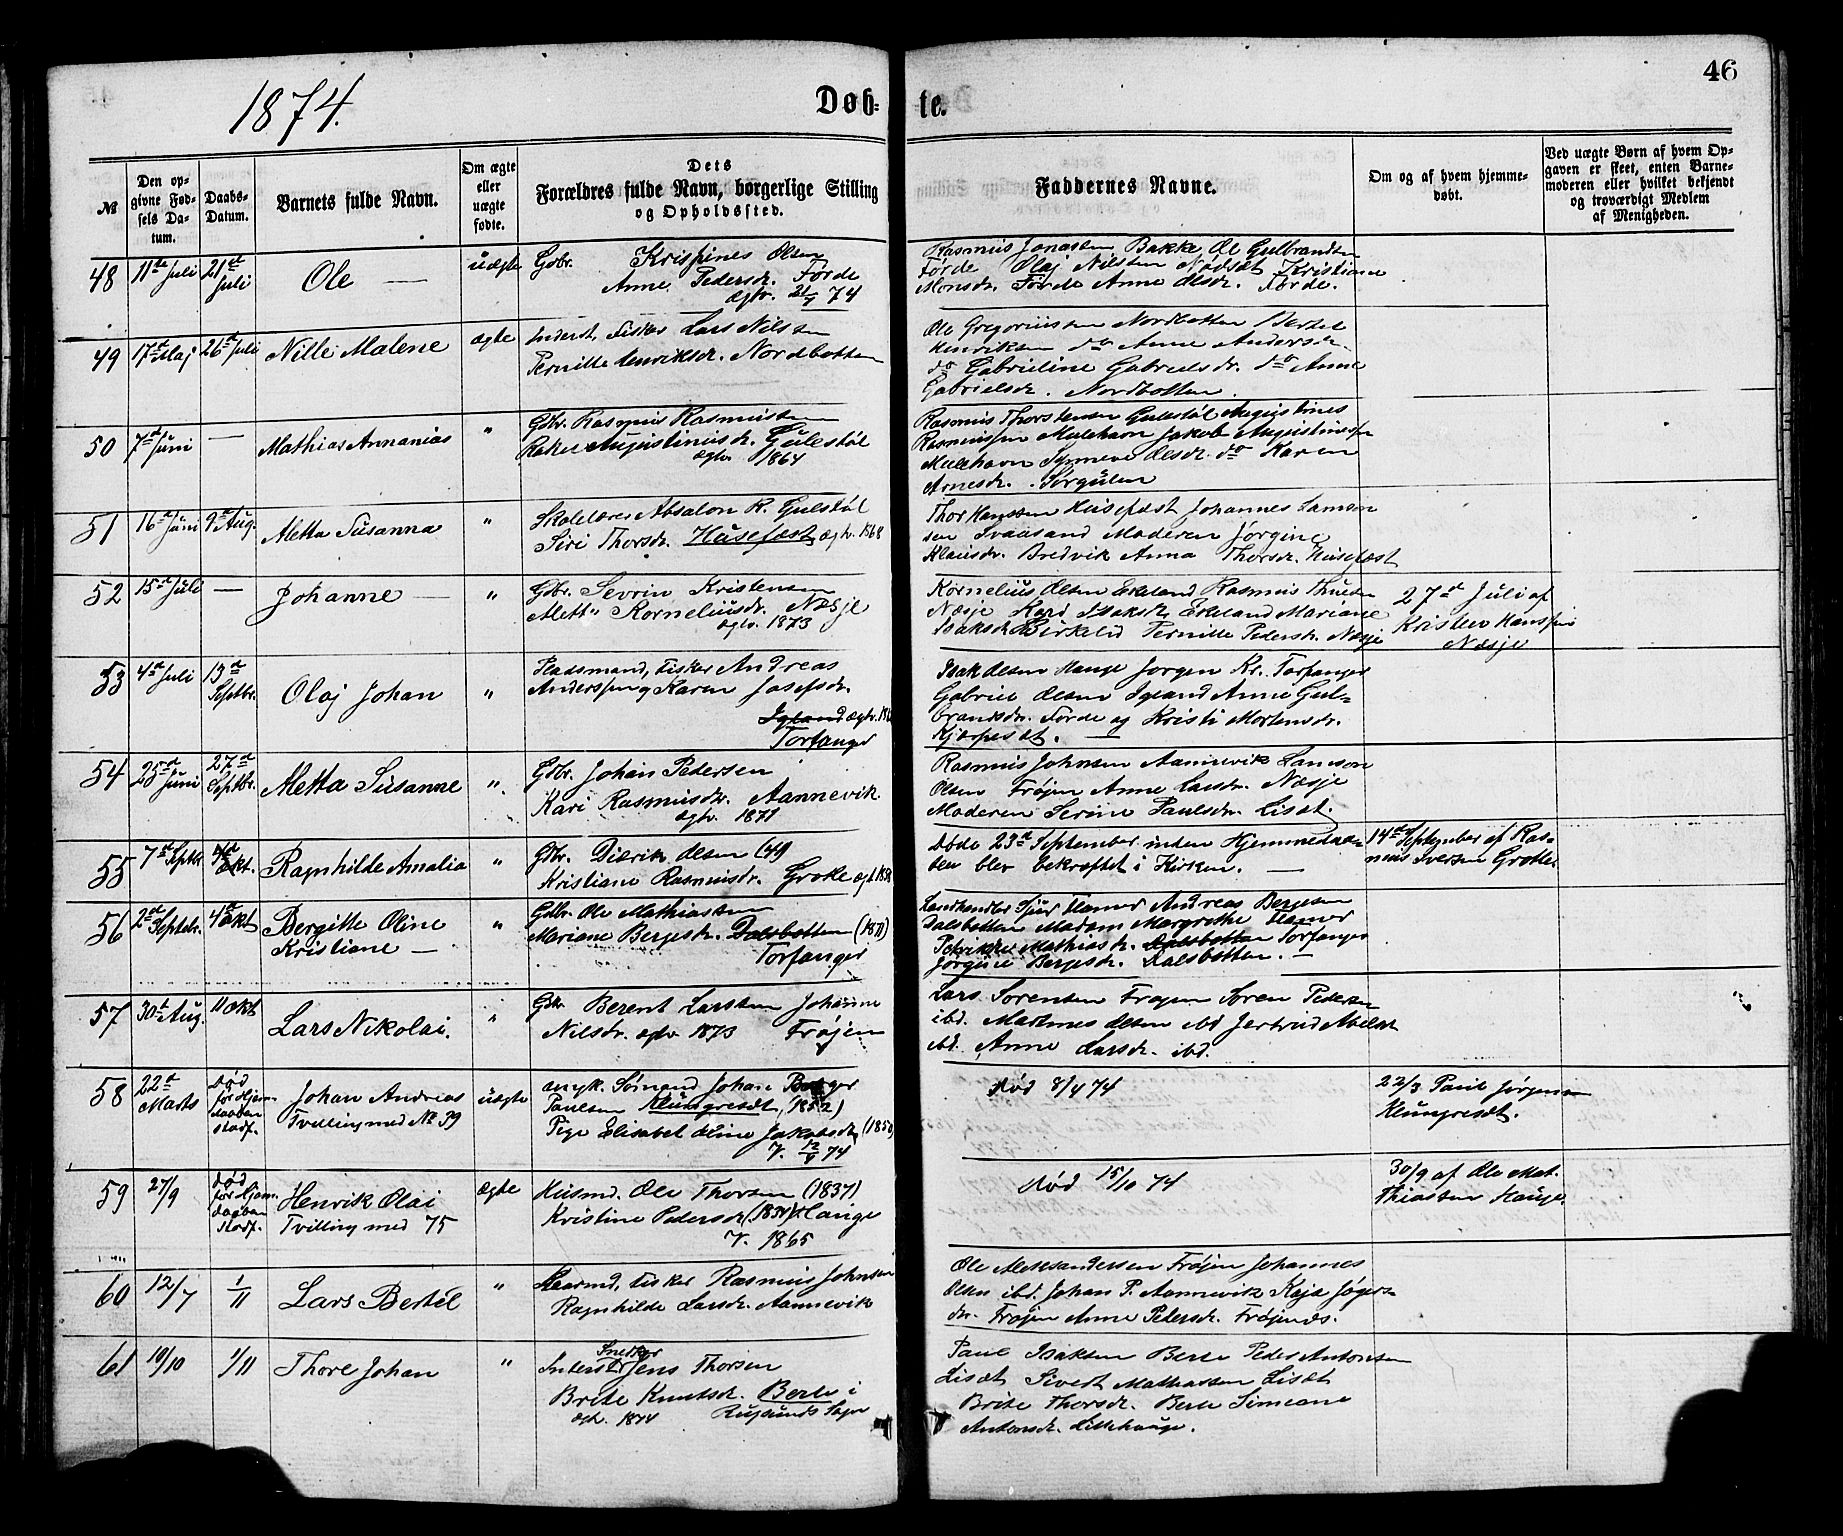 46
1874.
Döb-
te.
№
Den op-
givne Fød-
sels Da-
tum.
Daabs-
Datum.
Barnets fulde Navn.
Om ægte
eller
uægte
fødte.
Dets
Forældres fulde Navn, borgerlige Stilling
og Opholdssted.
Faddernes Navne.
Om og af hvem hjemme-
døbt.
Ved uægte Børn af hvem Op-
gaven er skeet, enten Barne-
moderen eller hvilket bekjendt
og troværdigt Medlem
af Menigheden.
48 11te Juli 21de Juli Ole — uægte
Gbr. Krispines Olsen
Anne Pedersdr. Førde
ægtv. 74
Rasmus Jonassen Bakke Ole Gulbrandsen
Førde Olaj Nilsen Nødsæt Kristiane
Monsdr. Førde Anne Olsdr. Førde.
49 17de Maj 26de Juli Nille Malene ægte
Inderst, Fisker Lars Nilsen
Pernille Henriksdr. Nordbotten
Ole Gregoriussen Nordbotten Bertel
Henriksen do Anne Andersdr.
do Gabrieline Gabrielsdr. do Anne
Gabrielsdr. Nordbotten.
50 7de Juni — Mathias Annanias "
Gbr. Rasmus Rasmussen
Augustinusdr. Gulestøl
ægtv. 1864
Rasmus Thorstensen Gulestøl Augustines
Rasmussen Mulehavn Jakob Augustinussen
Mulehavn Synneve Olsdr. do Karen
Arnesdr. Sørgulen
51 16de Juni 9de Aug. Metta Susanna "
Skolelærer Absalon R. Gulestøl
Siri Thorsdr. Husefæst ægtv. 1868
Thor Hanssen Husefæst Johannes Samson
sen Svaasand Moderen Jørgine
Klausdr. Bredvik Anna Thorsdr. Husefæst
52 15de Juli — Johanne — "
Gbr. Sevrin Kristensen
Mette Korneliusdr. Næsje
ægtv. 1873
Kornelius Olsen Ekeland Rasmus Thuesen
Næsje Kari Isaksdr. Ekeland Mariane
Isaksdr. Birkelid Pernille Pedersdr. Næsje
27de Juli af
Kristen Hanssen
Næsje
53 4de Juli 13de Septbr. Olaj Johan "
Pladsmand, Fisker Andreas
Anderssen og Karen Josefsdr.
Igland ægtv.
Torfanger
Isak Olsen Hauge Jørgen Kr. Torfanger
Gabriel Olsen Igland Anne Gul-
brandsdr. Førde og Kristi Mortensdr.
Kjærpesæt. —
54 25de Juni 27de Septbr. Metta Susanne "
Gbr. Johan Pedersen
Kari Rasmusdr. Aannevik.
ægtv. 1871
Rasmus Johnsen Aannevik Samson
Olsen Frøjen Anne Larsdr. Næsje
Moderen Serine Paulsdr. Lisæt.
55 7de Septbr. 4de Okt. Ragnhilde Amalia "
Gbr. Didrik Olsen (41)
Kristiane Rasmusdr. Grotle ægtv.
Døde 23de September inden Hjemmedaa-
ben blev bekræftet i Kirken. —
14de September af Ras-
mus Iversen Grotle.
56 2de Septbr. 4de Okt Bergitte Oline
Kristiane — "
Gbr. Ole Mathiassen
Mariane Bergesdr. Dalsbotten (1871)
Torfanger
Landhandler Sjur Hamer Andreas Bergesen
Dalsbotten Madam Margrethe Hamer
Petrikke Mathiasdr. Dalsbotten Torfanger
Jørgine Bergesdr. Dalsbotten. —
57 30te Aug. 11 Okt Lars Nikolai. "
Gbr. Berent Larssen Johanne
Nilsdr. ægtv 1873 Frøjen
Lars Sørensen Frøjen Søren Pedersen
ibd. Martines Olsen ibd Jertrud Abelset
ibd. Anne Larsdr. ibd.
58 22de Marts Død før Hjem-
daaben
stadf. Johan Andreas
Tvilling med № 39 uægte
Ungk. Sømand Johan Berger
Paulsen Klungresæt, (1852)
Pige Elisabet Oline Jakobsdtr (1850)
V. 74
død 8/4 74
22/3 Paul Jørgensen
Klungresæt.
59 27/9 Død
før Hjem-
daaben
stadf. Henrik Olai
Tvilling med 75 Ægte
Husmd. Ole Thorsen (1837)
Kristine Pedersdr. Hauge
V. 1865
død 15/10 74
30/9 af Ole Mat.
Thiassen Hauge.
60 12/7 1/11 Lars Bertél "
Fisker Rasmus Johnsen
Ragnhilde Larsdr. Aannevik
Ole Aleksandersen Frøjen Johannes
Olsen ibd. Johan P. Aannevik Kaja Jøgers
dr. Frøjen Anne Pedersdr. Frøjenæs.
61 10/10 1/11 Thore Johan "
Snedker
Inderst Jens Thorsen
Brite Knutsdr. Berle i
ægtv. 1874 Rugsunds Sogn
Paul Isaksen Berle Peder Antonsen
Lisæt Sivert Mathiassen Lisæt
Brite Thorsdr. Berle Simeane
Antonsdr. Lillehauge.